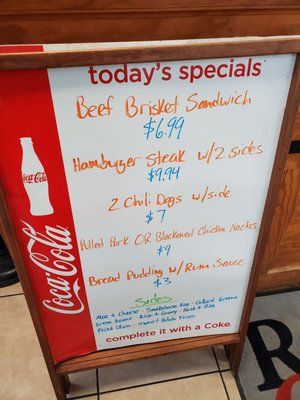 today's specials
Beef Brisket Sandwich
$6.99
Hamburger Steak w/2 sides
$9.94
2 Chili Dogs w/side
$7
Pulled Pork OR Blackened Chicken Nachos
$9
Bread Pudding w/ Rum Sauce
$3
Sides
Mac & Cheese - Smokehouse Rice - Collard Greens
Green Beans - Rice & Gravy -
Fried Okra - Sweet Potato Fries
complete it with a Coke
Coca-Cola
Coca-Cola
R